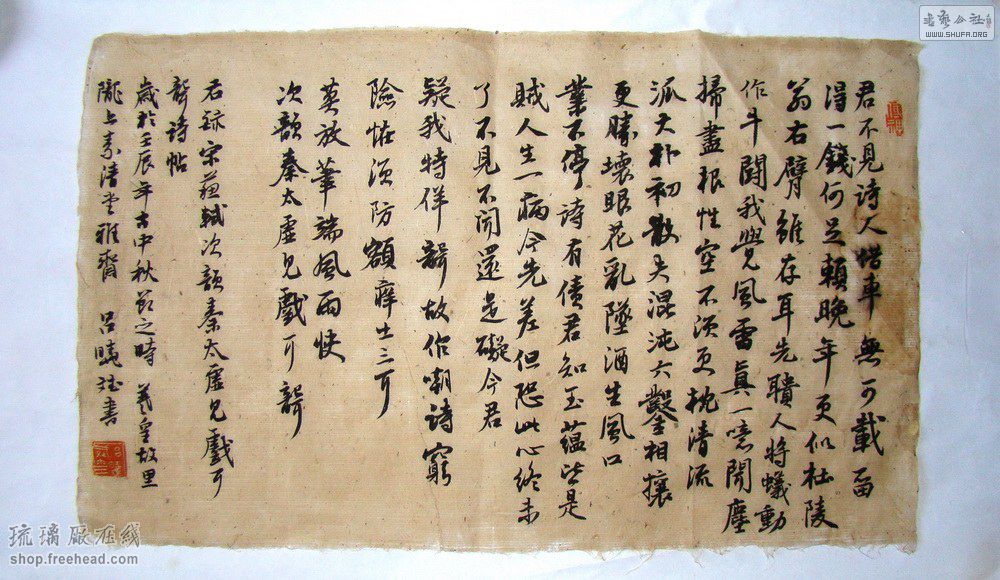 君不見詩人借車無可載留
得一錢何足賴晚年更似杜陵
翁右臂雖存耳先聵人將蟻動
作牛鬪我覺風雷真一噫聞塵
掃盡根性空不須更枕清流
派大朴初散失混沌六鑿相攘
更勝壞眼花亂墜酒生風口
業不停詩有債君知五蘊皆是
賊人生一病今先差但恐此心終未
了不見不聞還是礙今君
疑我特佯聾故作嘲詩窮
險怪須防額癢出三耳
莫放筆端風雨快
次韻秦太虛見戲耳聾
右録宋蘇軾次韻秦太虛見戲耳
聾詩帖
歲於壬辰年古中秋節之時 羲皇故里
隴上素清堂雅齋 呂曉 書
書藝公社
WWW.SHUFA.ORG
琉璃廠在线
shop.freehead.com